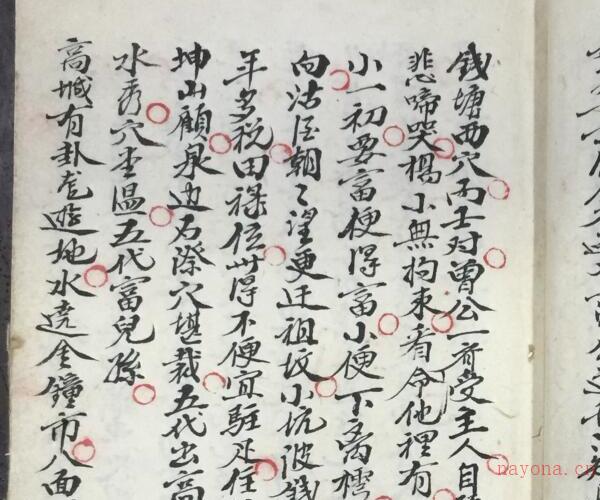 钱塘西穴丙壬对曾公一首受主人自
悲啼哭楊小無拘束看命他裡有
小一初要富便得富小便下
向沽酒朝々望更迁祖坟小坑陂钱
年多税田禄位世得不便宜駐足住
坤山顧泉边石際穴堪裁五代出高
水秀穴坐温五代富兒孫
高城有卦龙遊地水遶金鐘市八面
nayona.cn